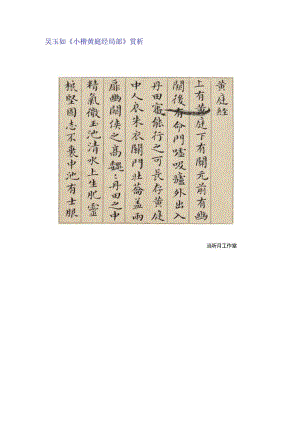 吴玉如《小楷黄庭经局部》赏析
黄庭經
上有黄庭下有關元前有幽
關後有命門噓吸廬外出入
丹田審能行之可長存黄庭
中人衣朱衣關門壯蘥蓋兩
扉幽關俠之高巍〻丹田之中
精氣微玉池清水上生肥靈
根堅固志不衰中池有士服
当听月工作室